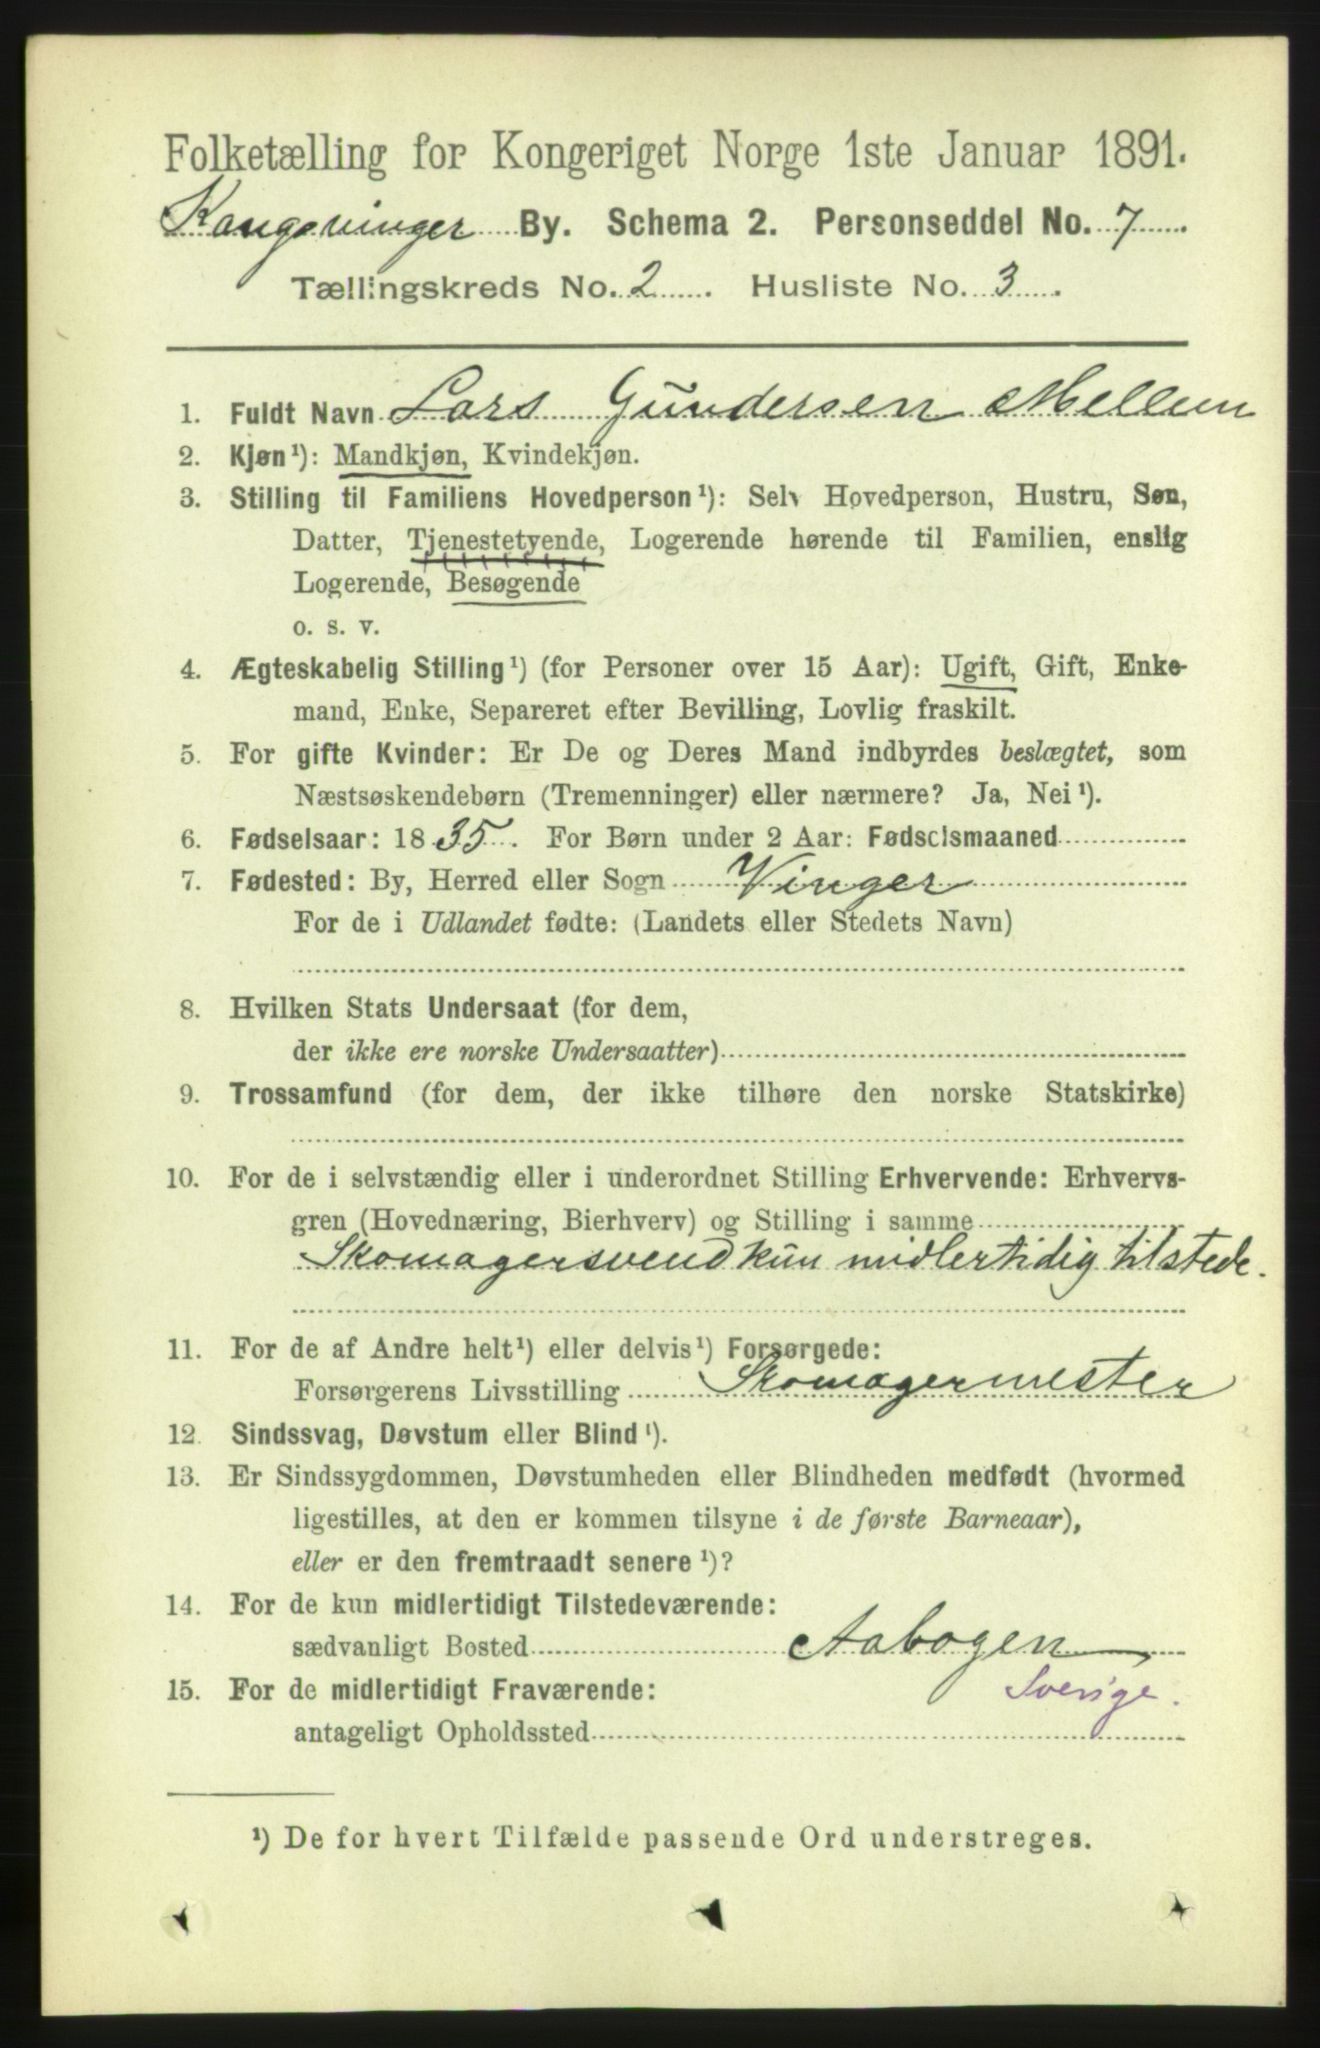 Folketælling for Kongeriget Norge 1ste Januar 1891.
Kongsvinger By. Schema 2. Personseddel No. 7
Tællingskreds No. 2 Husliste No. 3
1. Fuldt Navn Lars Gundersen Mellem
2. Kjøn¹): Mandkjøn, Kvindekjøn.
3. Stilling til Familiens Hovedperson¹): Selv Hovedperson, Hustru, Søn,
Datter, Tjenestetyende, Logerende hørende til Familien, enslig
Logerende, Besøgende
o. s. v.
4. Ægteskabelig Stilling¹) (for Personer over 15 Aar): Ugift, Gift, Enke-
mand, Enke, Separeret efter Bevilling, Lovlig fraskilt.
5. For gifte Kvinder: Er De og Deres Mand indbyrdes beslægtet, som
Næstsøskendebørn (Tremenninger) eller nærmere? Ja, Nei¹).
6. Fødselsaar: 1835. For Børn under 2 Aar: Fødselsmaaned
7. Fødested: By, Herred eller Sogn Vinger
For de i Udlandet fødte: (Landets eller Stedets Navn)
8. Hvilken Stats Undersaat (for dem,
der ikke ere norske Undersaatter)
9. Trossamfund (for dem, der ikke tilhøre den norske Statskirke)
10. For de i selvstændig eller i underordnet Stilling Erhvervende: Erhvervs-
gren (Hovednæring, Bierhverv) og Stilling i samme
Skomagersvend kun midlertidig tilstede.
11. For de af Andre helt¹) eller delvis¹) Forsørgede:
Forsørgerens Livsstilling Skomagermester
12. Sindssvag, Døvstum eller Blind¹).
13. Er Sindssygdommen, Døvstumheden eller Blindheden medfødt (hvormed
ligestilles, at den er kommen tilsyne i de første Barneaar),
eller er den fremtraadt senere¹)?
14. For de kun midlertidigt Tilstedeværende:
sædvanligt Bosted Aabogen
15. For de midlertidigt Fraværende: Sverige.
antageligt Opholdssted
¹) De for hvert Tilfælde passende Ord understreges.